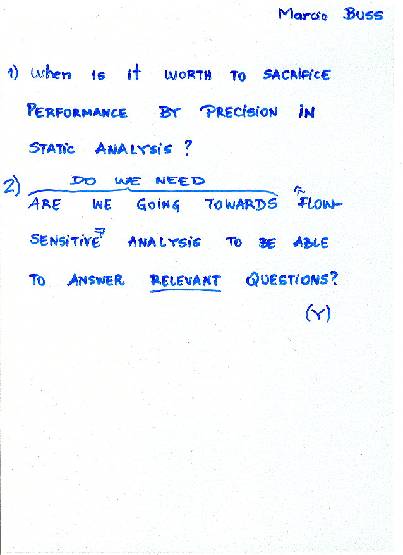 Marcio Buss
1) When is it worth to sacrifice
performance by precision in
static analysis?
2) Do we need
Are we going towards "flow-
sensitive" analysis to be able
to answer relevant questions?
(Y)